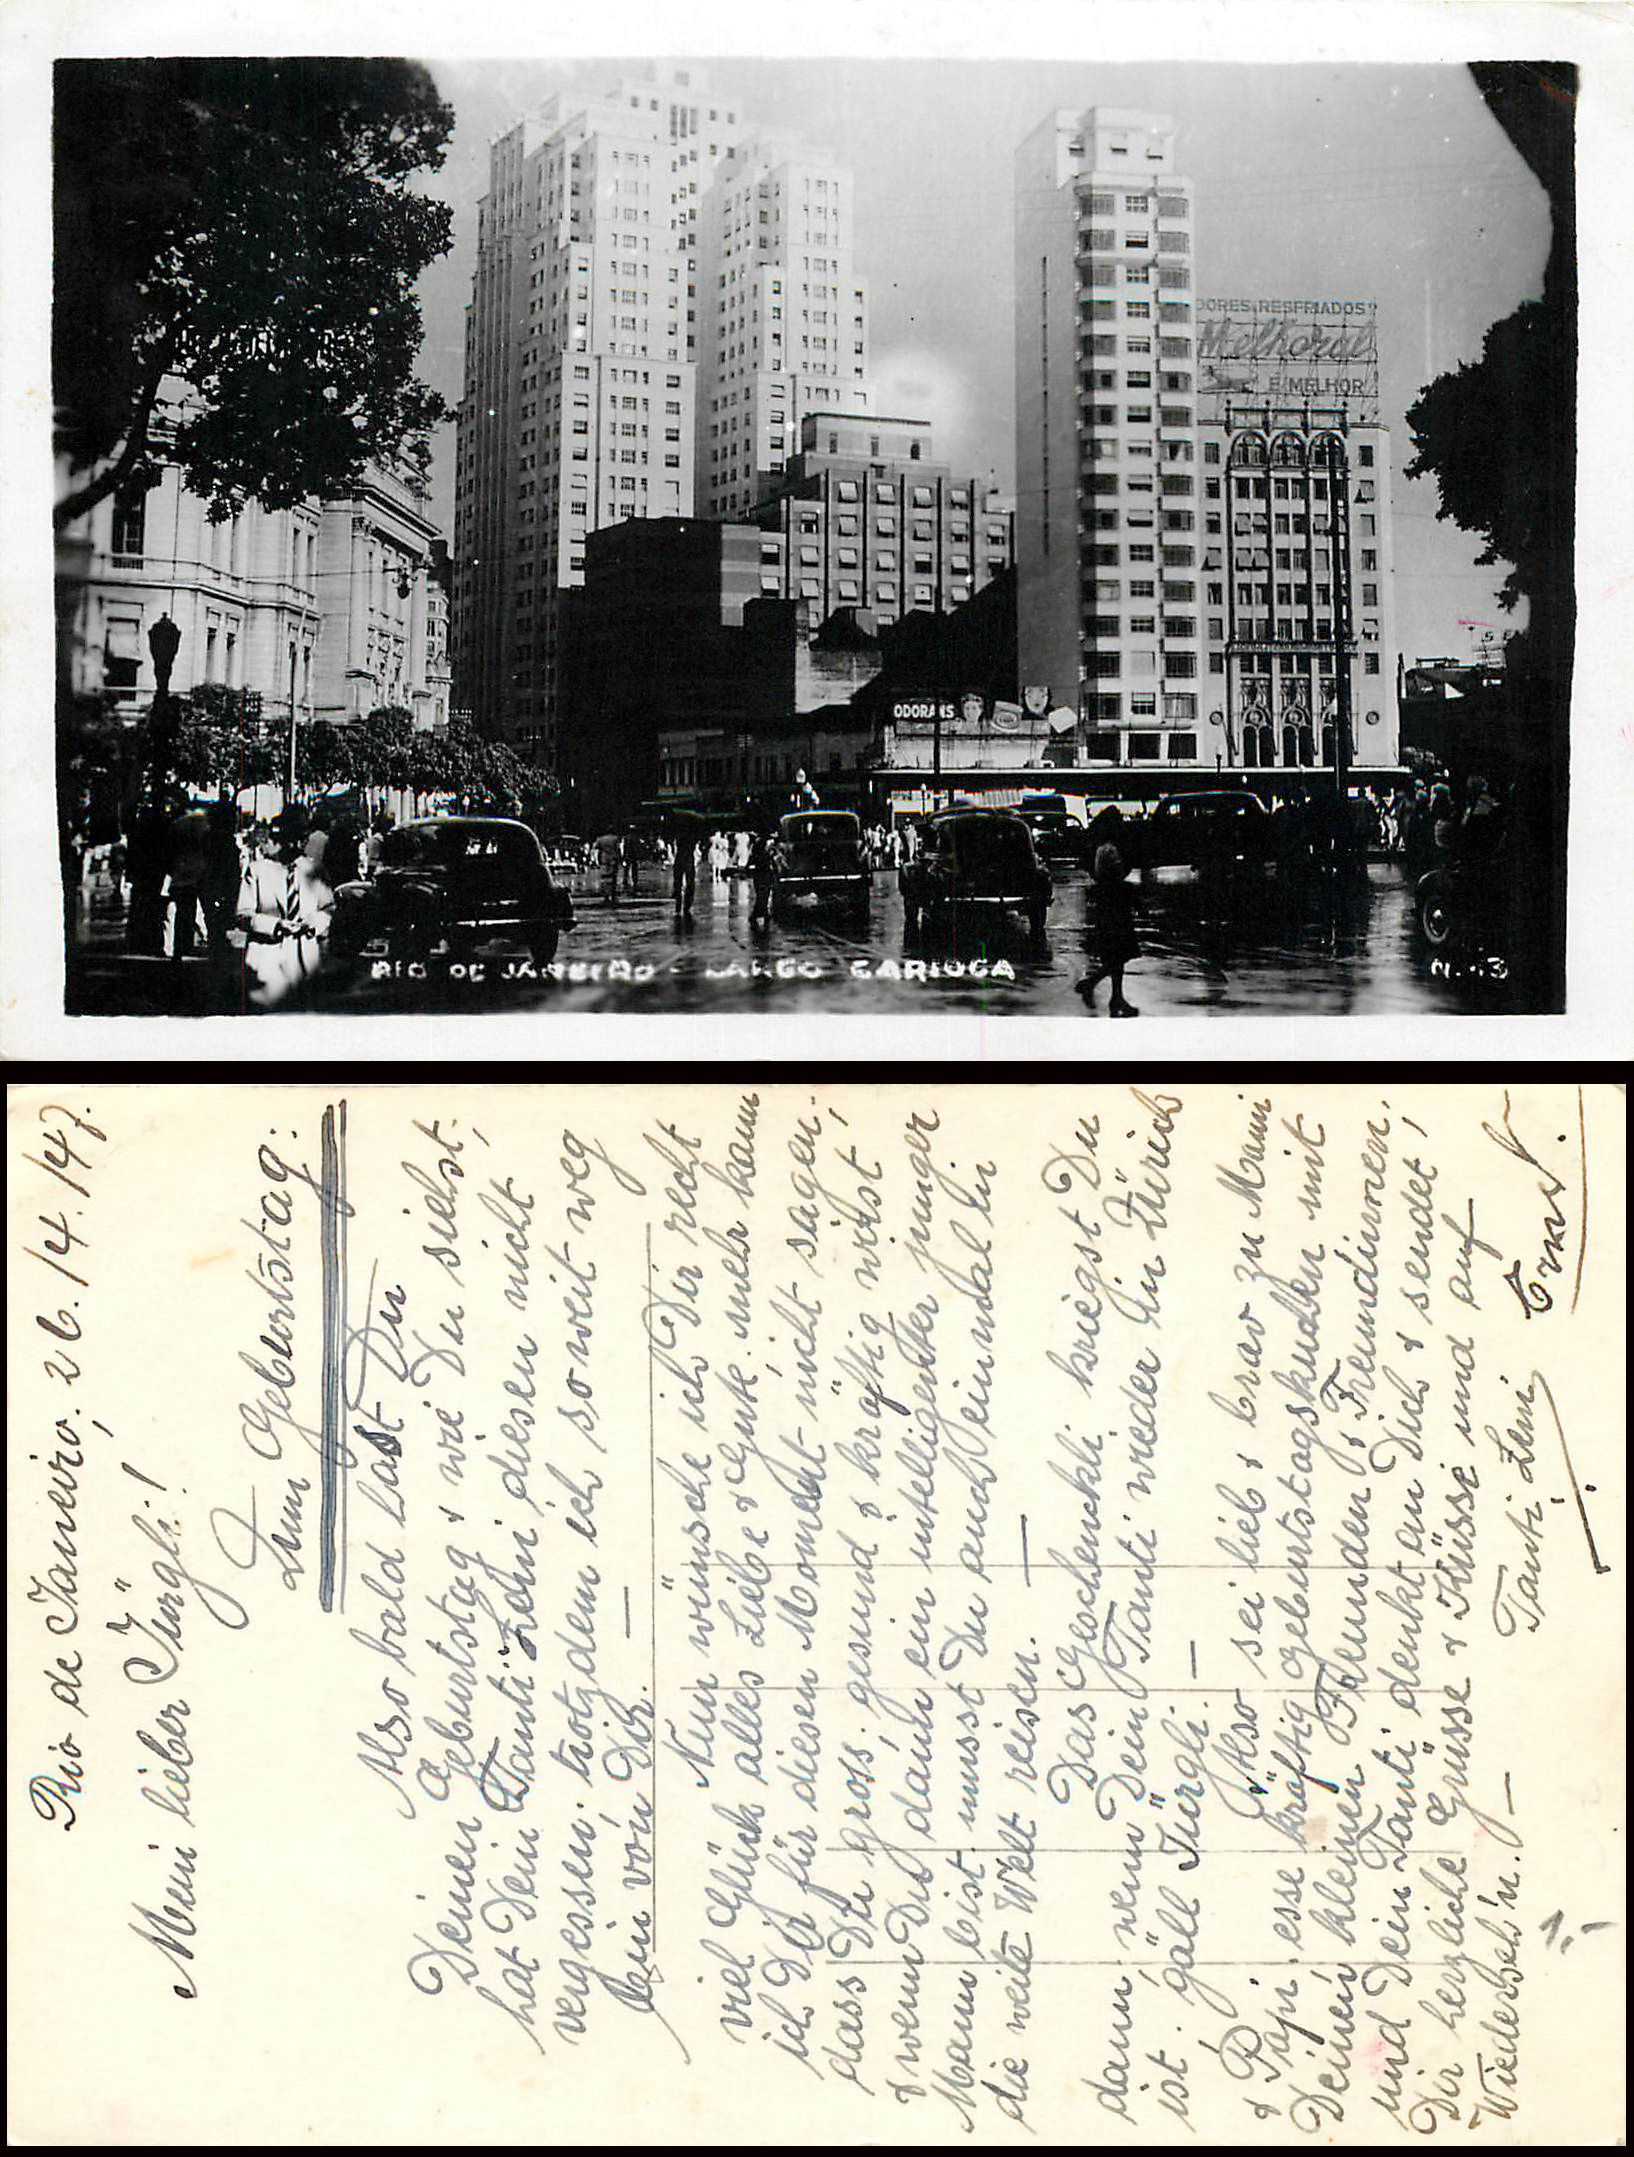 DORES E RESFRIADOS?
Melhoral
E MELHOR
ODORANS
RIO DE JANEIRO - LARGO CARIOCA
N. 13
Rio de Janeiro, 26./4./47.
Mein lieber Jürgli!
Zum Geburtstag:
Also bald hast Du
Deinen Geburtstag & wie Du siehst,
hat Dein Tanti Leni diesen nicht
vergessen, trotzdem ich so weit weg
bin von Dir. —
Nun wünsche ich Dir recht
viel Glück alles Liebe & Gute, mehr kann
ich Dir für diesen Moment nicht sagen,
dass Du gross, gesund & kräftig wirst,
& wenn Du dann ein inteligenter junger
Mann bist, musst Du auch einmal in
die weite Welt reisen. —
Das Geschenkli kriegst Du
dann, wenn Dein Tanti wieder in Zürich
ist, gäll Jürgli. —
Also sei lieb & brav zu Mami
& Papi, esse kräftig Geburtstagskuchen mit
Deinen kleinen Freunden & Freundinnen,
und Dein Tanti denkt an Dich & sendet,
Dir herzliche Grüsse & Küsse und auf
Wiederseh'n. —
Tanti Leni
Ernst.